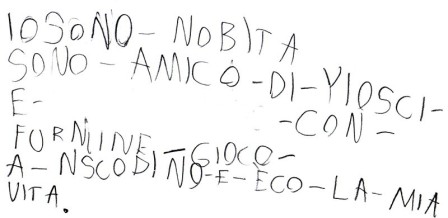 IOSOÑO- NOBITA
SONO - AMICO - DI - YIOSCI-
E- -CON-
FURNLINE - GIOCO -
A - NSCODINO - E - ECO - LA - MIA
VITA.